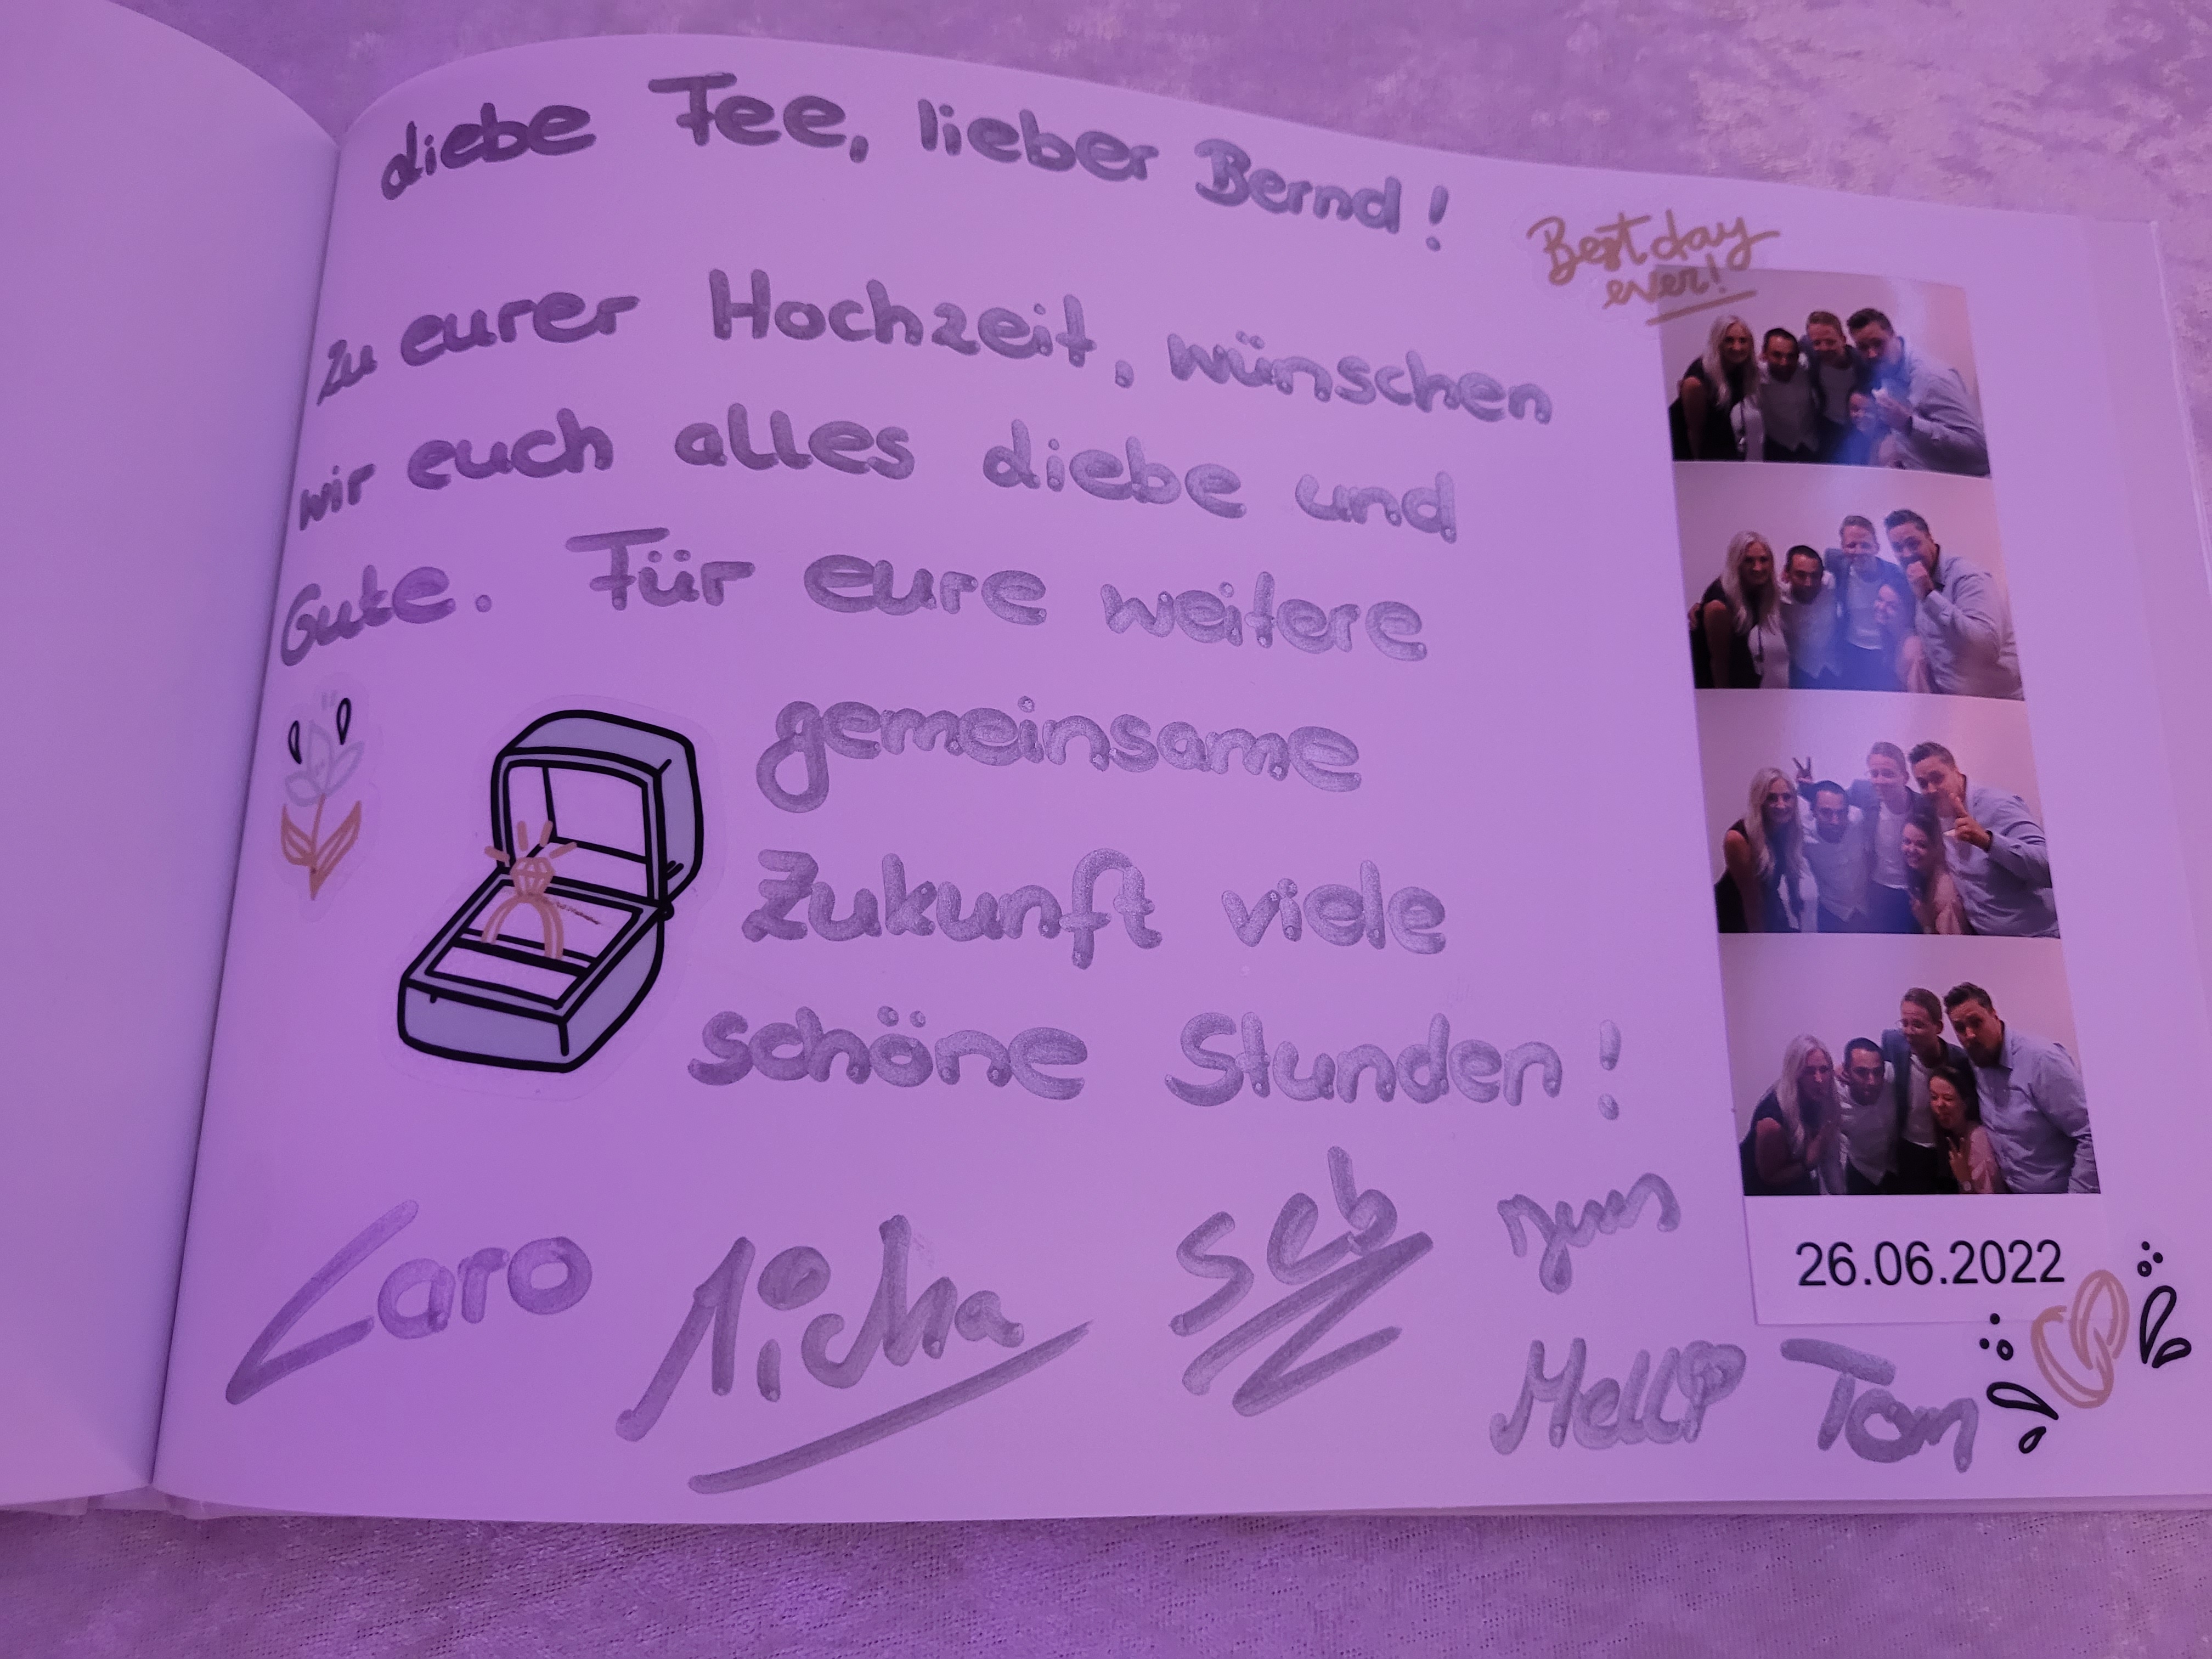 Liebe Fee, lieber Bernd!
Best day
ever!
Zu eurer Hochzeit, wünschen
wir euch alles Liebe und
Gute. Für eure weitere
gemeinsame
Zukunft viele
schöne Stunden!
Caro Micha Seb
26.06.2022
Melli Tom